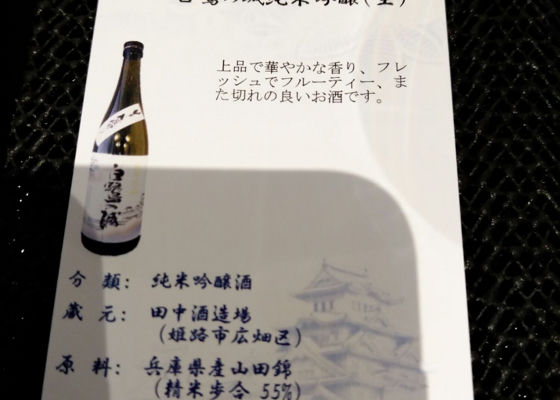 白鷺の城純米吟醸(生)
上品で華やかな香り、フレ
ッシュでフルーティー、ま
た切れの良いお酒です。
白鷺の城
分 類: 純米吟醸酒
蔵 元: 田中酒造場
(姫路市広畑区)
原 料: 兵庫県産山田錦
(精米歩合 55%)